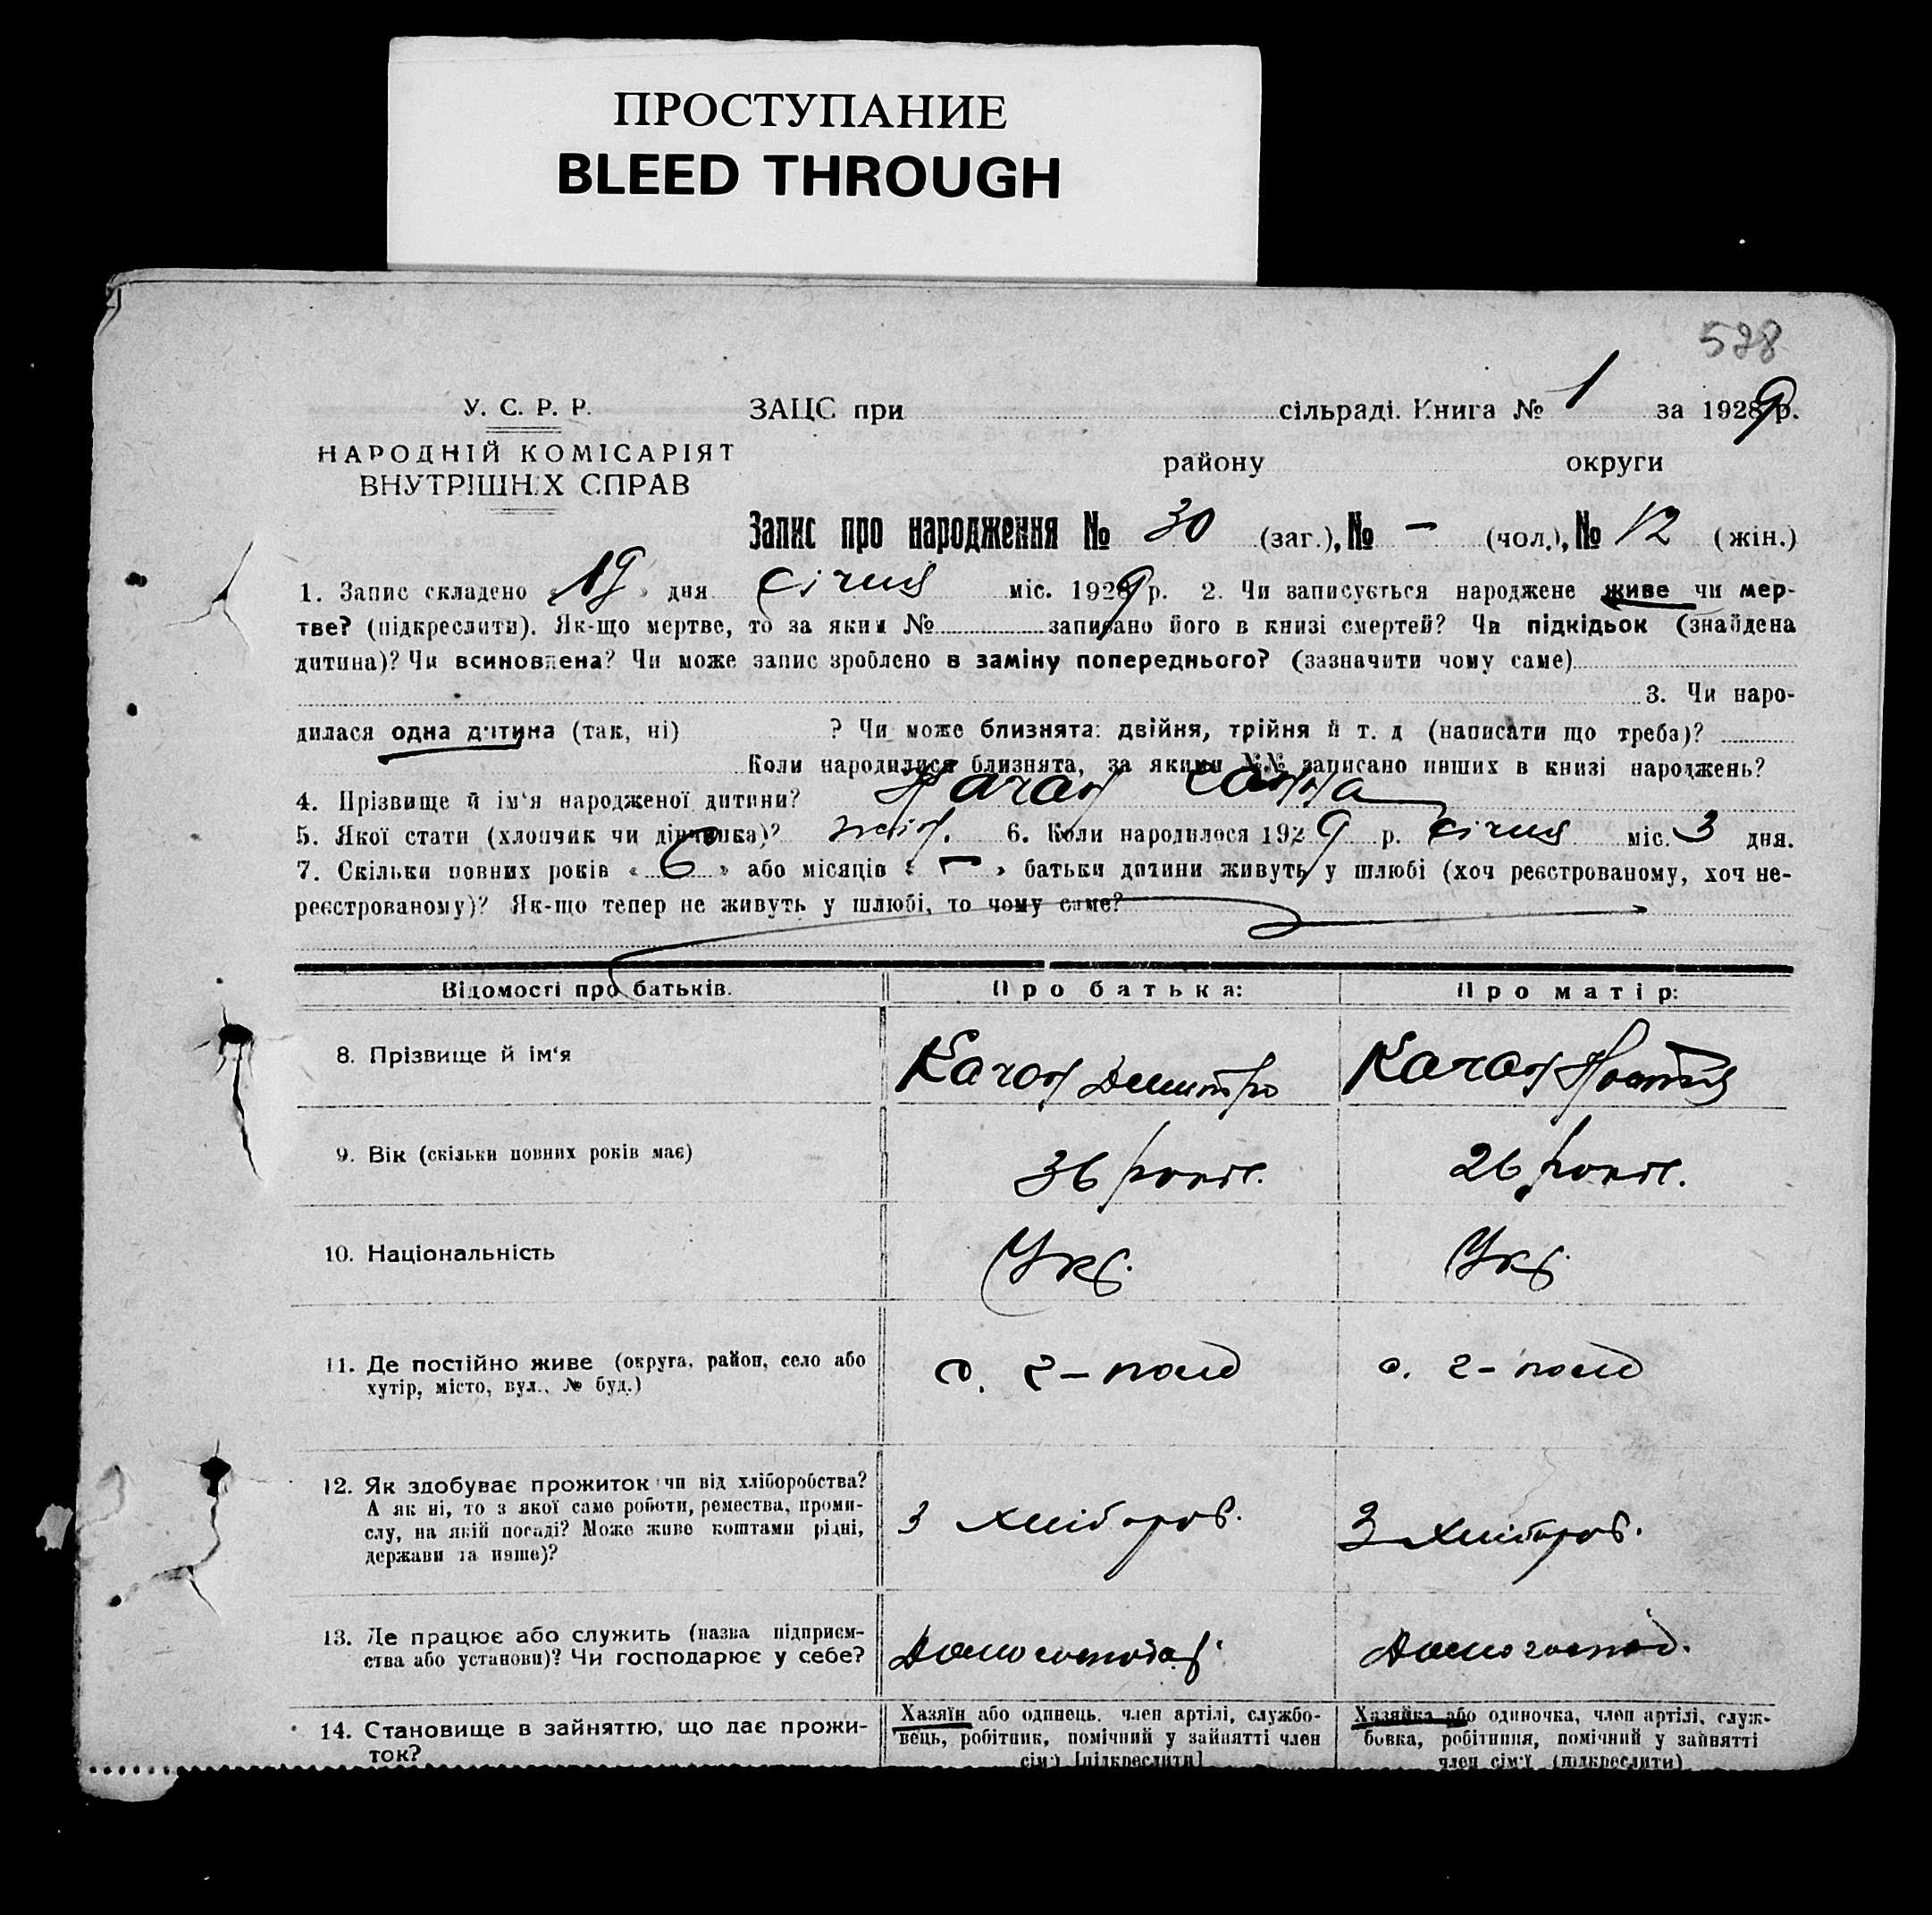 ПРОСТУПАНИЕ
BLEED THROUGH
528
У. С. Р. Р.
НАРОДНІЙ КОМІСАРІЯТ
ВНУТРІШНІХ СПРАВ
ЗАЦС при сільраді. Книга № 1 за 1929 р.
району округи
Запис про народження № 30 (заг.), № — (чол.), № 12 (жін.)
1. Запис складено « 19 » дня січня міс. 1929 р. 2. Чи записується народжене живе чи мер-
тве? (підкреслити). Як-що мертве, то за яким № записано його в книзі смертей? Чи підкідьок (знайдена
дитина)? Чи всиновлена? Чи може запис зроблено в заміну попереднього? (зазначити чому саме)
3. Чи наро-
дилася одна дитина (так, ні) ? Чи може близнята: двійня, трійня й т. д (написати що треба)?
Коли народилися близнята, за якими №№ записано инших в книзі народжень?
4. Прізвище й ім'я народженої дитини?
5. Якої стати (хлопчик чи дівчинка)? 6. Коли народилося 1929 р. січня міс. 3 дня.
7. Скільки повних років « 6 » або місяців « — » батьки дитини живуть у шлюбі (хоч реєстрованому, хоч не-
реєстрованому)? Як-що тепер не живуть у шлюбі, то чому саме?
Відомості про батьків. Про батька: Про матір:
8. Прізвище й ім'я Дмитро
9. Вік (скільки повних років має) 36 років. 26 років.
10. Національність Укр. Укр.
11. Де постійно живе (округа, район, село або
хутір, місто, вул., № буд.)
12. Як здобуває прожиток чи від хліборобства?
А як ні, то з якої саме роботи, ремества, проми-
слу, на якій посаді? Може живе коштами рідні,
держави та инше)?
З хлібороб. З хлібороб.
13. Де працює або служить (назва підприєм-
ства або установи)? Чи господарює у себе?
Домогосподар. Домогоспод.
14. Становище в зайняттю, що дає прожи-
ток?
Хазяїн або одинець, член артілі, службо-
вець, робітник, помічний у зайнятті член
сім'ї [підкреслити]
Хазяйка або одиночка, член артілі, служ-
бовка, робітниця, помічний у зайнятті
член сім'ї (підкреслити)